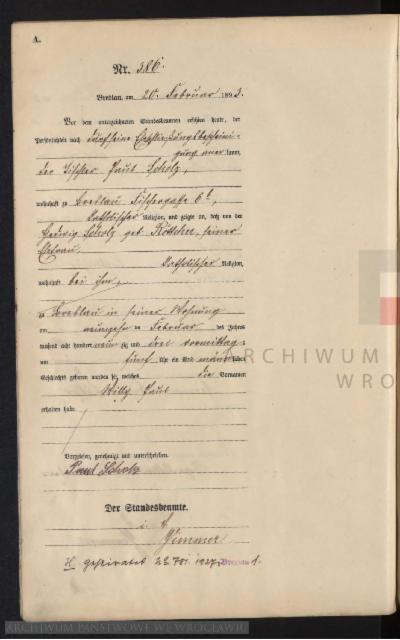 A.
Nr. 386.
Breslau, am 20. Februar 1893.
Vor dem unterzeichneten Standesbeamten erschien heute, der
Persönlichkeit nach durch seine
kannt,
der Tischler Paul Scholz,
wohnhaft zu Breslau Fischergasse 6b,
katholischer Religion, und zeigte an, daß von der
Hedwig Scholz geb. Böttcher, seiner
Ehefrau
katholischer Religion,
wohnhaft bei ihm,
zu Breslau in seiner Wohnung
am neunzehn ten Februar des Jahres
tausend acht hundert neun zig und drei vormittags
um fünf Uhr ein Kind männlichen
Geschlechts geboren worden sei, welches die Vornamen
Willy Paul
erhalten habe.
Vorgelesen, genehmigt und unterschrieben.
Paul Scholz
Der Standesbeamte.
i. V.
Zimmer
1927 Breslau I.
ARCHIWUM
WRO
ARCHIWUM PAŃSTWOWE WE WROCŁAWIU